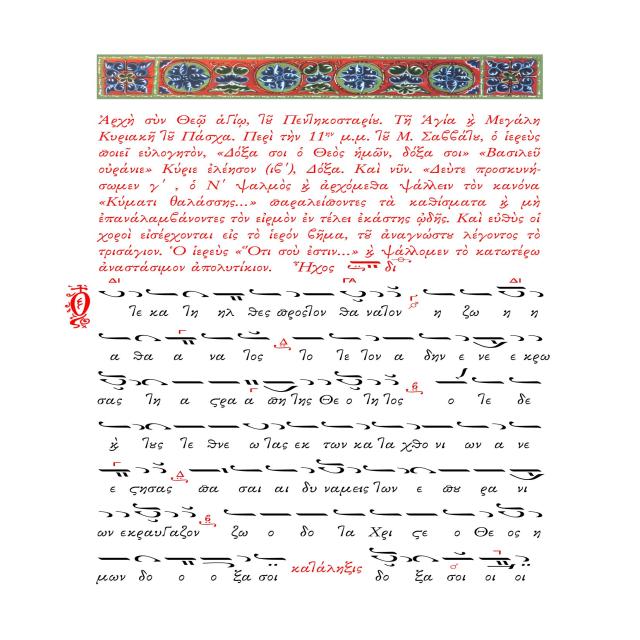 Ἀρχὴ σὺν Θεῷ ἁγίῳ, τοῦ Πεντηκοσταρίου. Τῇ Ἁγία ϗ Μεγάλη
Κυριακῇ τοῦ Πάσχα. Περὶ τὴν 11ην μ.μ. τοῦ Μ. Σαββάτου, ὁ ἱερεὺς
ποιεῖ εὐλογητόν, «Δόξα σοι ὁ Θεὸς ἡμῶν, δόξα σοι» «Βασιλεῦ
οὐράνιε» Κύριε ἐλέησον (ιβ΄), Δόξα. Καὶ νῦν. «Δεύτε προσκυνή-
σωμεν γ΄, ὁ Ν΄ Ψαλμὸς ϗ ἀρχόμεθα ψάλλειν τὸν κανόνα
«Κύματι θαλάσσης...» παραλείποντες τὰ καθίσματα ϗ μὴ
ἐπανάλαμβάνοντες τὸν εἱρμὸν ἐν τέλει ἑκάστης ᾠδῆς. Καὶ εὐθὺς οἱ
χοροὶ εἰσέρχονται εἰς τὸ ἱερόν βῆμα, τοῦ ἀναγνώστου λέγοντος τὸ
τρισάγιον. Ὁ ἱερεὺς «Ὅτι σοῦ ἐστιν...» ϗ ψάλλομεν τὸ κατωτέρω
ἀναστάσιμον ἀπολυτίκιον. Ἦχος δι
ΔΙ ΓΑ ΔΙ
Ὁ τε κα τη ηλ θες προς τον θα να τον η ζω η η
α θα α να τος το τε τον α δην ε νε ε κρω
σας τη α στρα α πη της Θε ο τη τος ο τε δε
ϗ τους τε θνε ω τας εκ των κα τα χθο νι ων α νε
ε στησας πα σαι αι δυ ναμεις των ε που ρα νι
ων εκραυγαζον ζω ο δο τα Χρι στε ο Θε ος η
μων δο ο ο ξα σοι κατάληξις δο ξα σοι οι οι